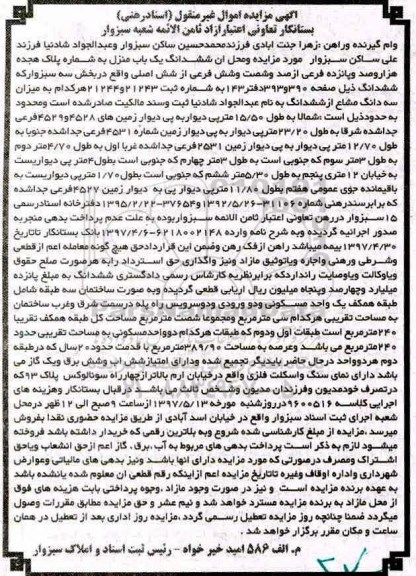 آگهی مزایده اموال غیرمنقول (اسنادرهنی)
بستانکار تعاونی اعتبارآزاد ثامن الائمه شعبه سبزوار
وام گیرنده وراهن :زهرا جنت ابادی فرزندمحمدحسین ساکن سبزوار وعبدالجواد شادنیا فرزند
علی ساکن سبزوار مورد مزایده ومحل آن ششدانگ یک باب منزل به شماره پلاک هجده
هزاروصد وپانزده فرعی ازصد وشصت وشش فرعی از شش اصلی واقع دربخش سه سبزوارکه
ششدانگ ذیل صفحه ۳۹۰و۳۹۳دفتر۱۴۳ به شماره ثبت ۲۱۲۴۳و۲۱۲۴۴هرکدام به میزان
سه دانگ مشاع ازششدانگ به نام عبدالجواد شادنیا ثبت وسند مالکیت صادرشده است ومحدود
به حدودذیل است :شمالا به طول ۱۵/۵۰متر پی دیواربه پی دیوار زمین های ۴۵۲۸و۴۵۲۹فرعی
جداشده شرقا به طول ۲۳/۲۰متر پی دیوار به پی دیوار زمین شماره ۴۵۳۱فرعی جداشده جنوبا به
طول ۱۲/۷۰ متر پی دیوار به پی دیوار زمین ۲۵۳۱فرعی جداشده غربا اول به طول ۴/۷۰متر دوم
به طول ۳متر سوم که جنوبی است به طول ۳متر چهارم که جنوبی است بطول۴متر پی دیواریست
به خیابان ۱۲متری پنجم به طول ۵/۳۰متر ششم که جنوبی است بطول۱/۷۰متر پی دیواریست به
باقیمانده جوی عمومی هفتم بطول ۱۱/۸۰متر پی دیوار پی به دیوار زمین ۴۵۲۷فرعی جداشده
که برابرسندرهنی شماره ۳۶۰۸۱-۱۳۹۲/۵/۲۶و۳۷۶۵۴-۱۳۹۵/۲/۲۲دفترخانه اسنادرسمی
۱۵سبزوار دررهن تعاونی اعتبار ثامن الائمه سبزواربوده به علت عدم پرداخت بدهی منجربه
صدور اجرائیه گردیده وبه شرح نامه وارده ۶۲۱۸۰۰۲۱۴۸-۱۳۹۷/۴/۶بانک بستانکار تاتاریخ
۱۳۹۷/۴/۳۰بیمه میباشد راهن ازفک رهن وفمین این قراردادحق هیچ گونه معامله اعم ازقطعی
وشرطی ورهنی واجاره ویاتوثیق مازاد ونیز واگذاری حق استرداد رابه هرصورت صلح حقوق
ویاوکالت ویاوصایت را نداردکه برابرنظریه کارشناس رسمی دادگستری ششدانگ به مبلغ پانزده
میلیارد وچهارصد وپنجاه میلیون ریال ارزیابی قطعی گردیده وبه صورت ساختمان سه طبقه شامل
طبقه همکف یک واحد مسکونی ودو ورودی ودوسرویس راه پله درسمت شرق وغرب ساختمان
به مساحت تقریبی هرکدام سی مترمربع ومجموعا شصت مترمربع مساحت کل طبقه همکف تقریبا
۲۴۰مترمربع است طبقات اول ودوم که طبقات هرکدام دوواحدمسکونی به مساحت تقریبی حدود
۲۴۰مترمربع می باشد وعرصه به مساحت ۳۸۹/۹۰مترمربع با قدمت حدود۲۰سال که درطبقه
دوم هردوواحد درحال حاضر بایدیگر تجمیع شده ودارای امتیازشش اب وشش برق ویک گاز می
باشد دارای نمای سنگ واسکلت فلزی واقع درخیابان ارم بالاتر ازچهارراه سونالوکس پلاک ۹۳که
درتصرف خودمدیون وفرزندان مدیون وشخص ثالث می باشد درقبال بستانکار وهزینه های
اجرایی کلاسه ۹۶۰۰۵۱۶درروزشنبه مورخه۱۳۹۷/۵/۱۳ازساعت ۹صبح الی ۱۲ظهر درمحل
شعبه اجرای ثبت اسناد سبزوار واقع در خیابان اسد آبادی از طریق مزایده حضوری نقدا بفروش
میرسد.مزایده از مبلغ کارشناسی شده شروع وبه بالاترین رقمی که خریدار داشته باشد فروخته
میشود لازم به ذکر است پرداخت بدهی های مربوط به آب،برق، گاز اعم ازحق انشعاب ویاحق
اشتراک ومصرف درصورتی که مورد مزایده دارای انها باشد. ونیز بدهی های مالیاتی وعوارض
شهرداری واداره اوقاف وغیره تاتاریخ مزایده اعم ازاینکه رقم قطعی ان معلوم شده یانشده باشد
به عهده برنده مزایده است و نیز در صورت وجود مازاد ،وجوه پرداختی بابت هزینه های فوق
از محل مازاد به برنده مزایده مسترد خواهد شد و نیم عشر و حق مزایده مطابق مقررات وصول
میگردد ضمنا چنانچه روز مزایده تعطیل رسمی گردد ،مزایده روز اداری بعد از تعطیل در همان
ساعت و مکان مقرر برگزار خواهد شد .
م. الف ۵۸۶ امید خیر خواه - رئیس ثبت اسناد و املاک سبزوار